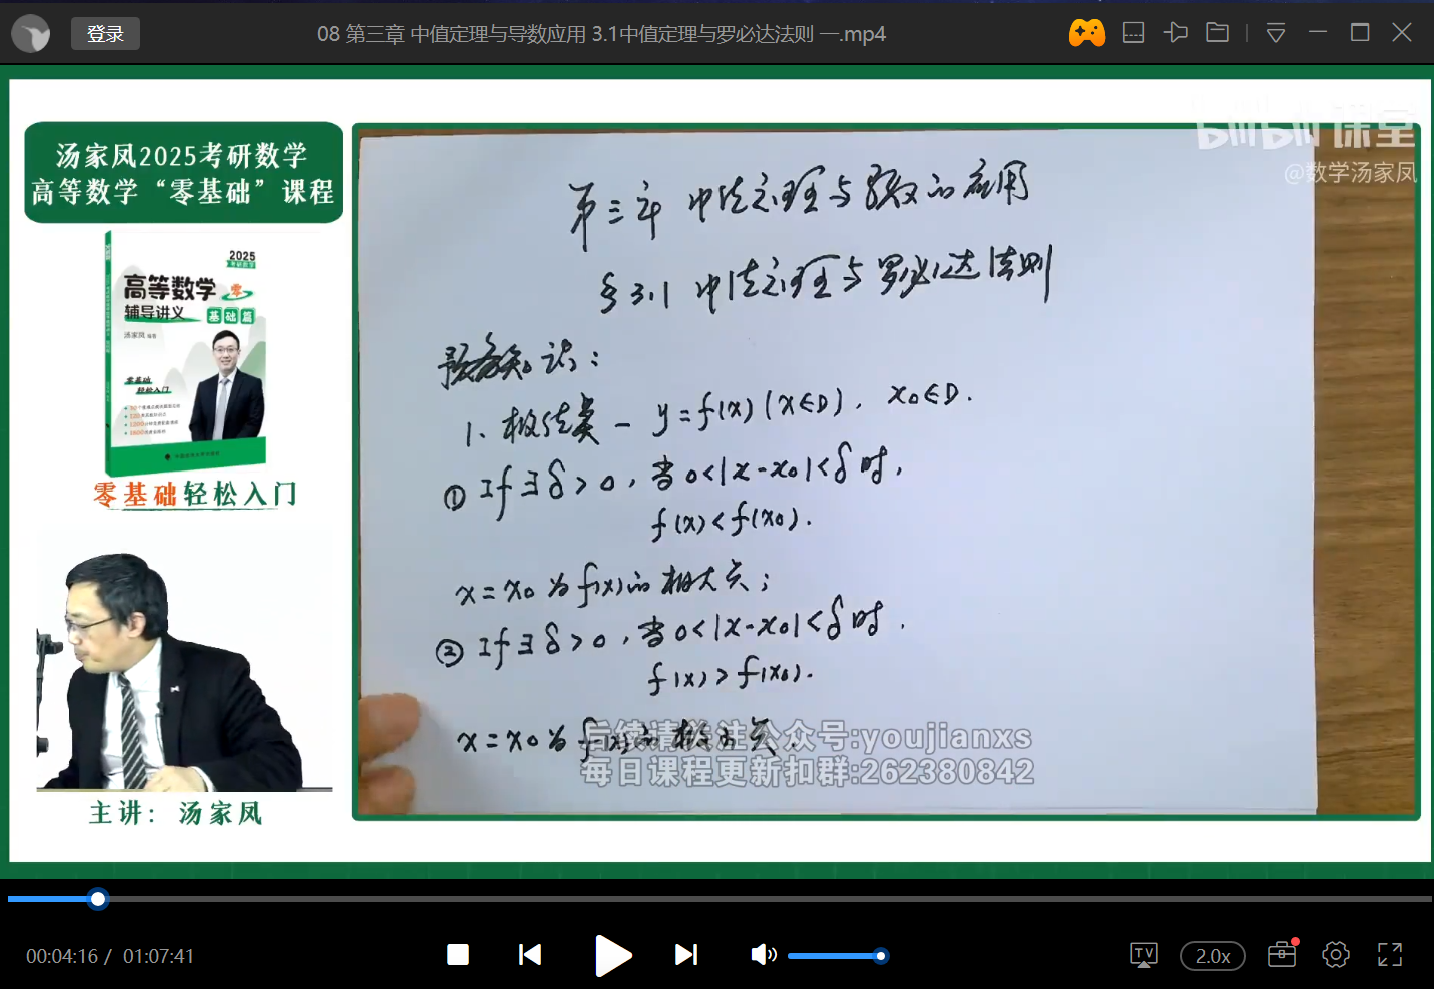 登录
08 第三章 中值定理与导数应用 3.1中值定理与罗必达法则 一.mp4
汤家凤2025考研数学
高等数学“零基础”课程
2025
考研数学
高等数学 零
辅导讲义 基础篇
汤家凤 编著
零基础
轻松入门
零基础轻松入门
主讲：汤家凤
bilibili课堂
@数学汤家凤
第三章 中值定理与导数的应用
§3.1 中值定理与罗必达法则
预备知识：
1、极值类 - y=f(x)(x∈D), x₀∈D.
① If ∃δ>0, 当0<|x-x₀|<δ时,
f(x)<f(x₀).
x=x₀为f(x)的极大点;
② If ∃δ>0, 当0<|x-x₀|<δ时.
f(x)>f(x₀).
x=x₀为f(x)的极小点.
后续请关注公众号:youjianxs
每日课程更新扣群:262380842
00:04:16 / 01:07:41
TV
2.0x